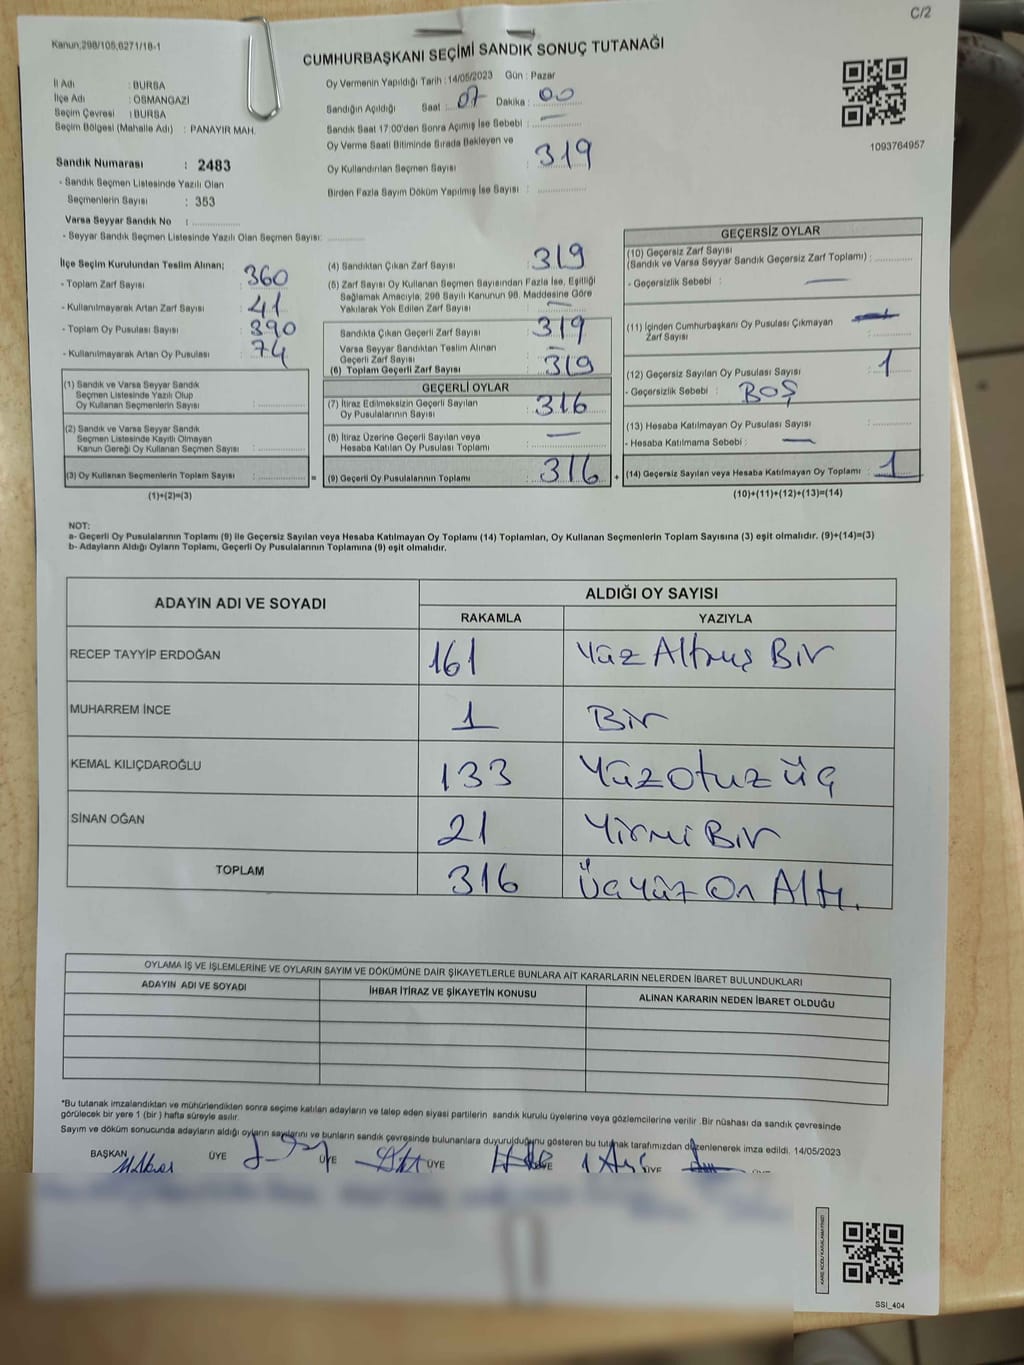 C/2
Kanun;298/105,6271/18-1
CUMHURBAŞKANI SEÇİMİ SANDIK SONUÇ TUTANAĞI
İl Adı : BURSA
İlçe Adı : OSMANGAZİ
Seçim Çevresi : BURSA
Seçim Bölgesi (Mahalle Adı) : PANAYIR MAH.
Oy Vermenin Yapıldığı Tarih : 14/05/2023 Gün : Pazar
Sandığın Açıldığı Saat : 07 Dakika : 00
Sandık Saat 17:00'den Sonra Açımış İse Sebebi : —
Oy Verme Saati Bitiminde Sırada Bekleyen ve
Oy Kullandırılan Seçmen Sayısı : 319
Birden Fazla Sayım Döküm Yapılmış İse Sayısı :
1093764957
Sandık Numarası : 2483
- Sandık Seçmen Listesinde Yazılı Olan
Seçmenlerin Sayısı : 353
Varsa Seyyar Sandık No :
- Seyyar Sandık Seçmen Listesinde Yazılı Olan Seçmen Sayısı:
İlçe Seçim Kurulundan Teslim Alınan;
- Toplam Zarf Sayısı : 360
- Kullanılmayarak Artan Zarf Sayısı : 41
- Toplam Oy Pusulası Sayısı : 390
- Kullanılmayarak Artan Oy Pusulası : 74
(1) Sandık ve Varsa Seyyar Sandık
Seçmen Listesinde Yazılı Olup
Oy Kullanan Seçmenlerin Sayısı :
(2) Sandık ve Varsa Seyyar Sandık
Seçmen Listesinde Kayıtlı Olmayan
Kanun Gereği Oy Kullanan Seçmen Sayısı :
(3) Oy Kullanan Seçmenlerin Toplam Sayısı :
(1)+(2)=(3)
(4) Sandıktan Çıkan Zarf Sayısı : 319
(5) Zarf Sayısı Oy Kullanan Seçmen Sayısından Fazla İse, Eşitliği
Sağlamak Amacıyla, 298 Sayılı Kanunun 98. Maddesine Göre
Yakılarak Yok Edilen Zarf Sayısı : —
Sandıkta Çıkan Geçerli Zarf Sayısı : 319
Varsa Seyyar Sandıktan Teslim Alınan
Geçerli Zarf Sayısı : —
(6) Toplam Geçerli Zarf Sayısı : 319
GEÇERLİ OYLAR
(7) İtiraz Edilmeksizin Geçerli Sayılan
Oy Pusulalarının Sayısı : 316
(8) İtiraz Üzerine Geçerli Sayılan veya
Hesaba Katılan Oy Pusulası Toplamı : —
= (9) Geçerli Oy Pusulalarının Toplamı : 316
GEÇERSİZ OYLAR
(10) Geçersiz Zarf Sayısı
(Sandık ve Varsa Seyyar Sandık Geçersiz Zarf Toplamı) :
- Geçersizlik Sebebi : —
(11) İçinden Cumhurbaşkanı Oy Pusulası Çıkmayan
Zarf Sayısı :
(12) Geçersiz Sayılan Oy Pusulası Sayısı : 1
- Geçersizlik Sebebi : BOŞ
(13) Hesaba Katılmayan Oy Pusulası Sayısı :
- Hesaba Katılmama Sebebi : —
+ (14) Geçersiz Sayılan veya Hesaba Katılmayan Oy Toplamı : 1
(10)+(11)+(12)+(13)=(14)
NOT:
a- Geçerli Oy Pusulalarının Toplamı (9) ile Geçersiz Sayılan veya Hesaba Katılmayan Oy Toplamı (14) Toplamları, Oy Kullanan Seçmenlerin Toplam Sayısına (3) eşit olmalıdır. (9)+(14)=(3)
b- Adayların Aldığı Oyların Toplamı, Geçerli Oy Pusulalarının Toplamına (9) eşit olmalıdır.
ADAYIN ADI VE SOYADI ALDIĞI OY SAYISI
RAKAMLA YAZIYLA
RECEP TAYYİP ERDOĞAN 161 Yüz Altmış Bir
MUHARREM İNCE 1 Bir
KEMAL KILIÇDAROĞLU 133 Yüz otuz üç
SİNAN OĞAN 21 Yirmi Bir
TOPLAM 316 Üçyüz On Altı.
OYLAMA İŞ VE İŞLEMLERİNE VE OYLARIN SAYIM VE DÖKÜMÜNE DAİR ŞİKAYETLERLE BUNLARA AİT KARARLARIN NELERDEN İBARET BULUNDUKLARI
ADAYIN ADI VE SOYADI İHBAR İTİRAZ VE ŞİKAYETİN KONUSU ALINAN KARARIN NEDEN İBARET OLDUĞU
*Bu tutanak imzalandıktan ve mühürlendikten sonra seçime katılan adayların ve talep eden siyasi partilerin sandık kurulu üyelerine veya gözlemcilerine verilir. Bir nüshası da sandık çevresinde
görülecek bir yere 1 (bir) hafta süreyle asılır.
Sayım ve döküm sonucunda adayların aldığı oyların sayılarını ve bunların sandık çevresinde bulunanlara duyurulduğunu gösteren bu tutanak tarafımızdan düzenlenerek imza edildi. 14/05/2023
BAŞKAN ÜYE ÜYE ÜYE ÜYE ÜYE
SSI_404